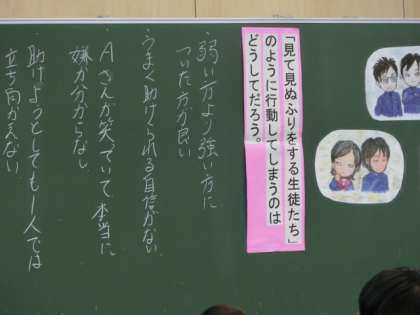 「見て見ぬふりをする生徒たち」
のように行動してしまうのは
どうしてだろう。
弱い方より強い方に
ついた方が良い
うまく助けられる自信がない
Aさんが笑っていて本当に
嫌か分からない
助けようとしても1人では
立ち向かえない